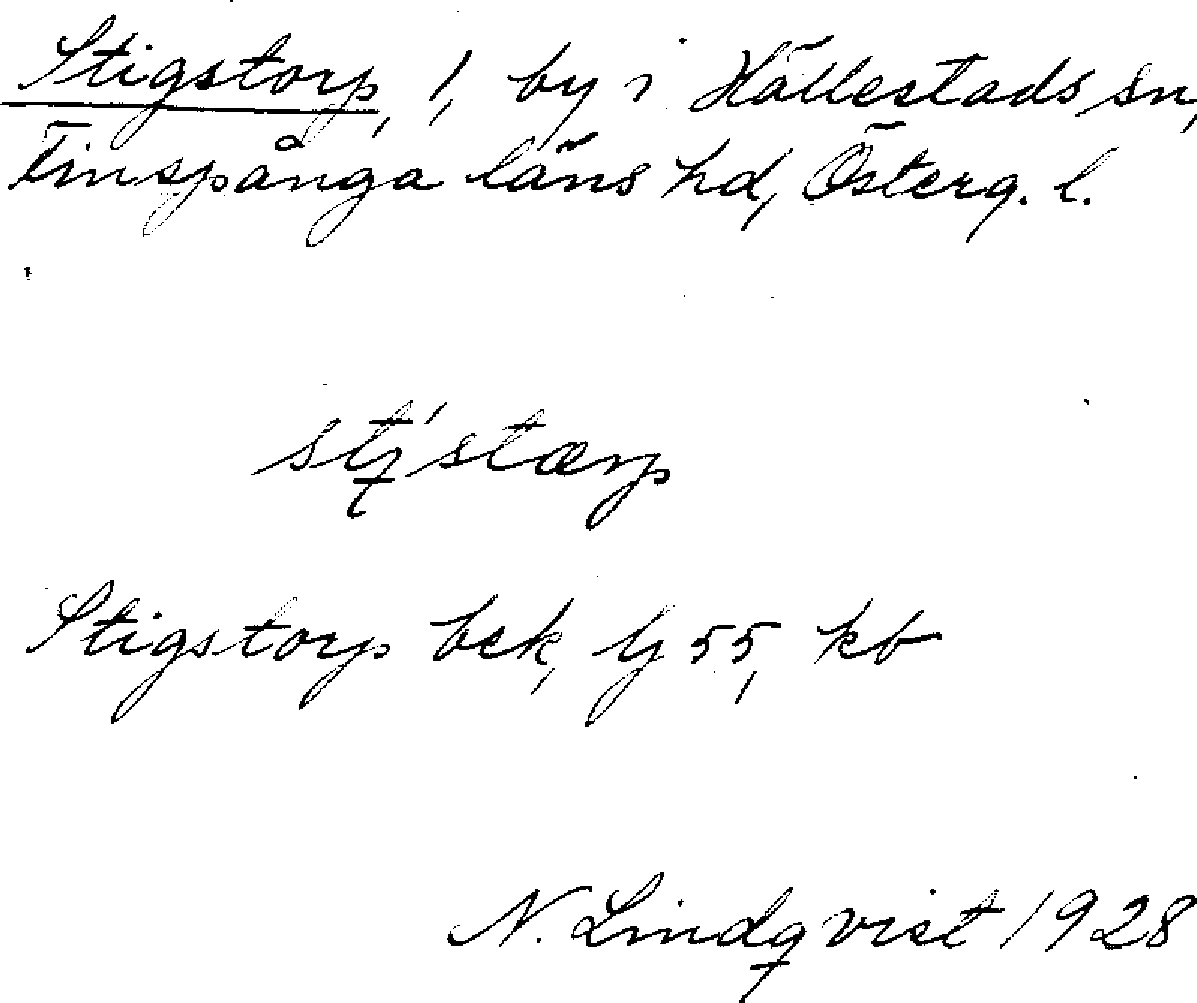 Stigstorp, 1, by i Hällestads sn,
Finspånga läns hd, Österg. l.
Stigstorp bek, lj 55, kb
N. Lindqvist 1928